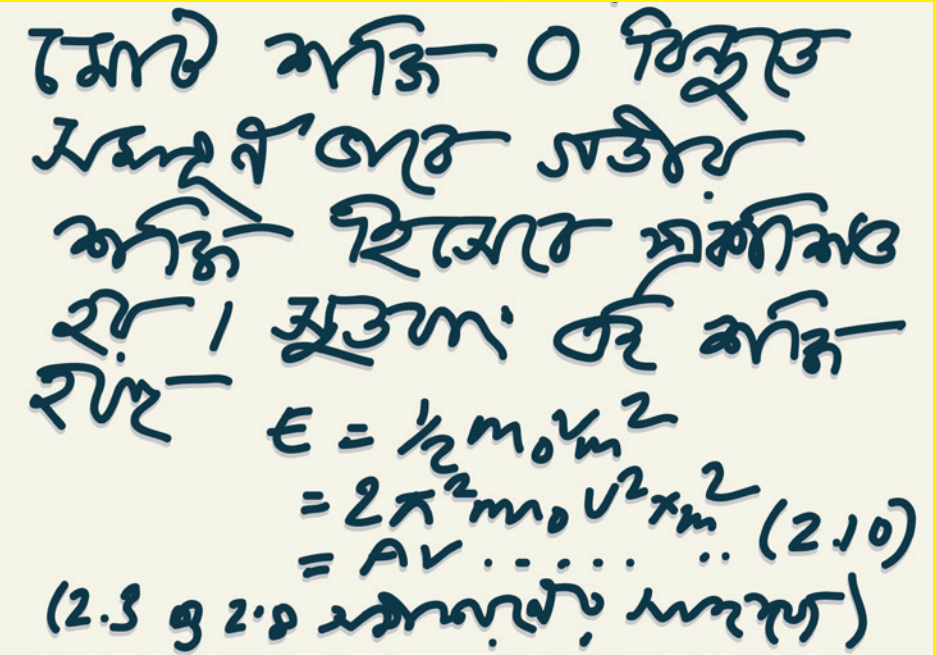 মোট শক্তি O বিন্দুতে
সম্পূর্ণ ভাবে গতীয়
শক্তি হিসেবে প্রকাশিত
হয় । সুতরাং এই শক্তি
হচ্ছে
E = ½ m₀vₘ²
= 2π²m₀ν²xₘ² (2.10)
= Aν . . . . . . ..
(2.3 ও 2.8 সমীকরণের সাহায্যে)